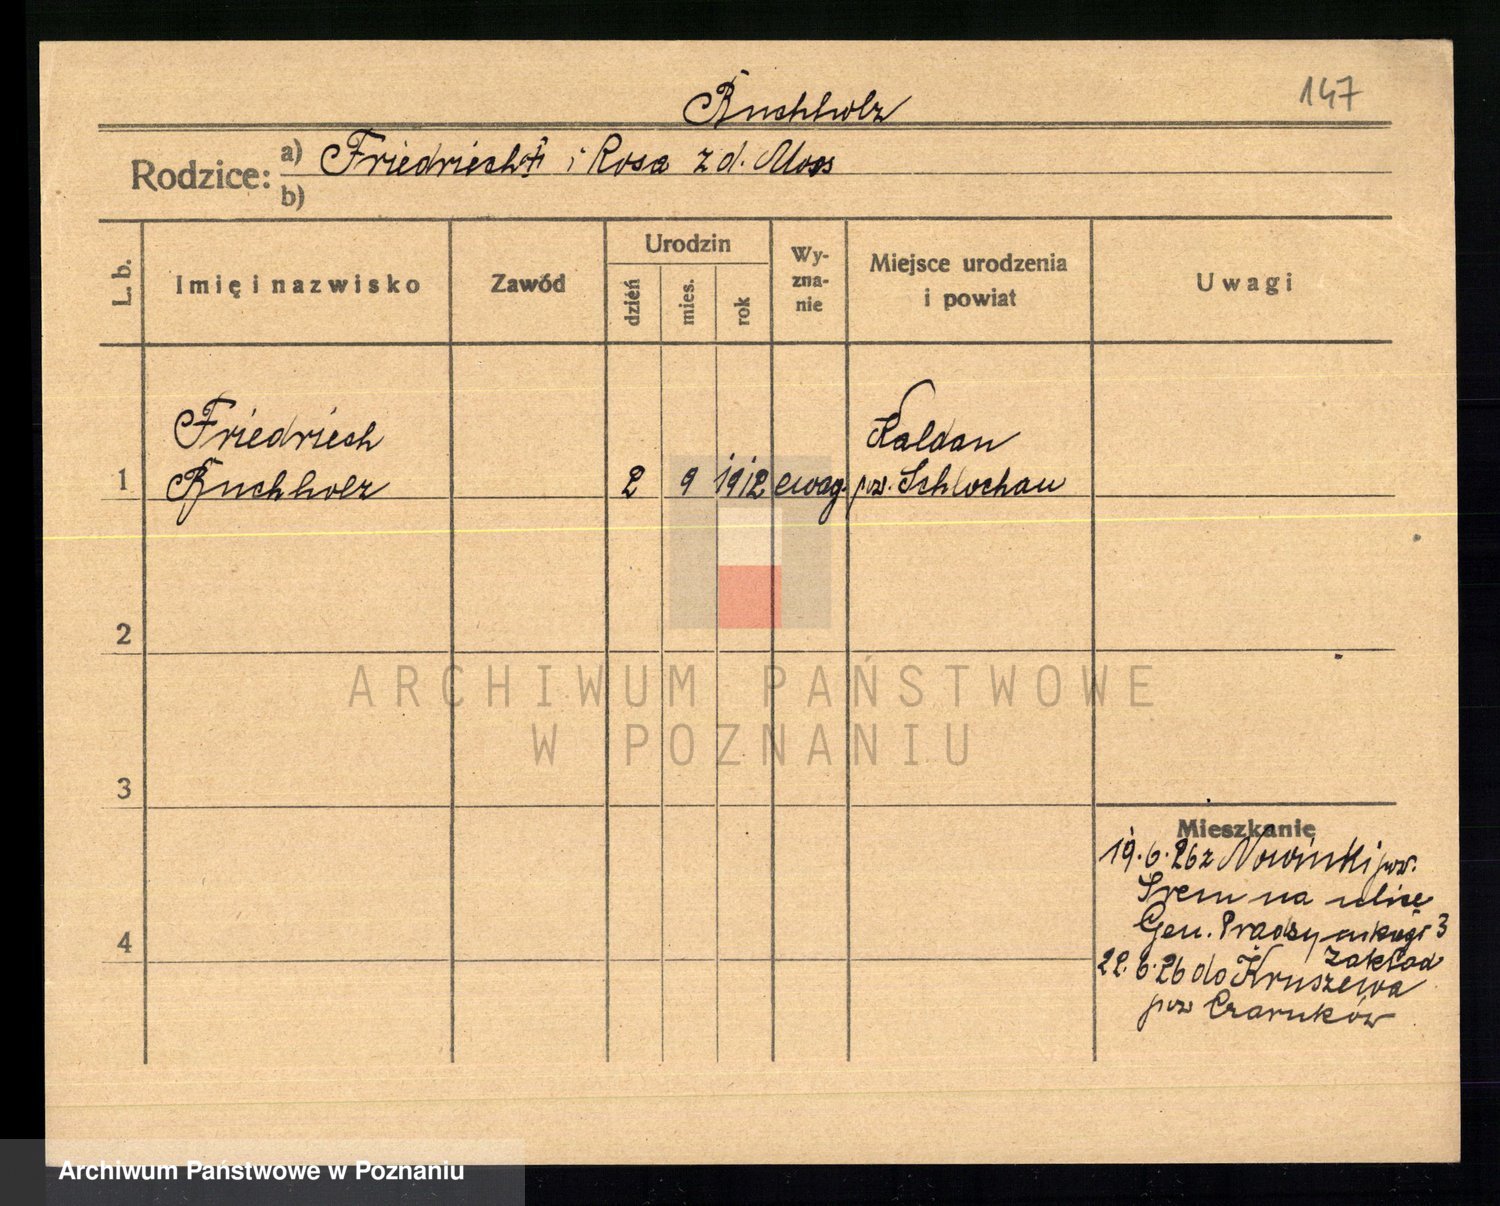 147
Buchholz
Rodzice:
a) Friedriech i Rosa z d. Moos
b)
L. b.
Imię i nazwisko
Zawód
Urodzin
dzień
mies.
rok
Wy-
zna-
nie
Miejsce urodzenia
i powiat
Uwagi
Friedriech
Kaldau
1 Buchholz 2 9 1912 ewag. pow. Schlochau
2
3
4
Mieszkanie
19.6.26 z Nowinki pow.
Śrem na ulice
Gen. Prądzyńskiego 3
Zakład
22.6.26 do Kruszewa
pow Czarnków
ARCHIWUM PAŃSTWOWE
W POZNANIU
Archiwum Państwowe w Poznaniu